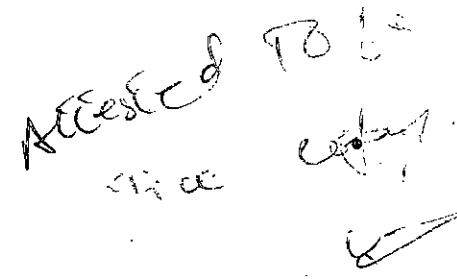 Attested To be
true copy.